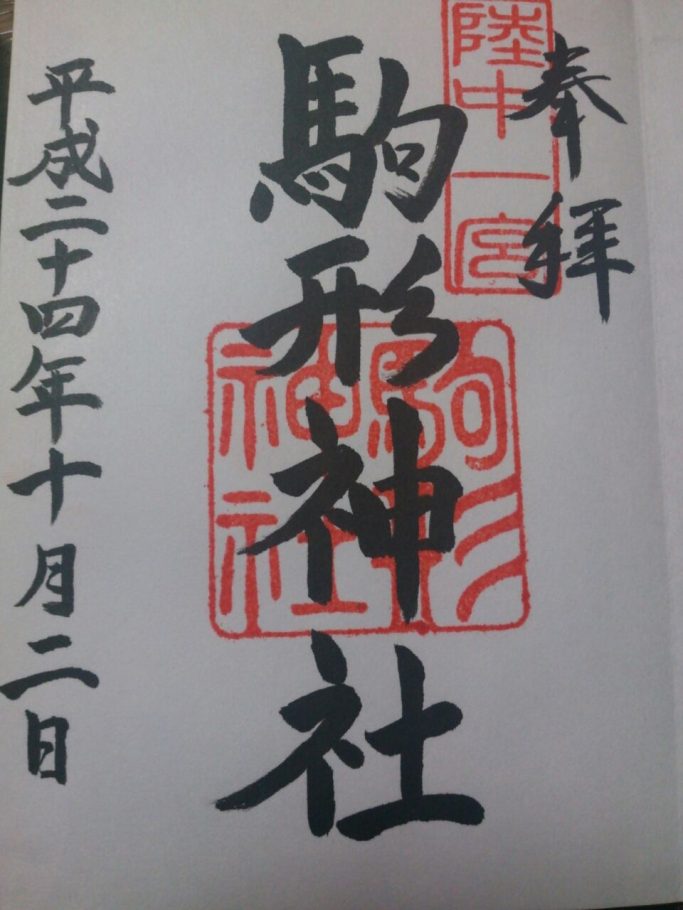 奉拝
陸中一宮
駒形神社
駒形神社
平成二十四年十月二日